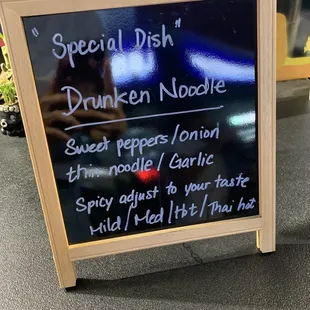 "Special Dish"
Drunken Noodle
Sweet peppers/onion
thin noodle/ Garlic
Spicy adjust to your taste
Mild/Med/Hot/Thai hot